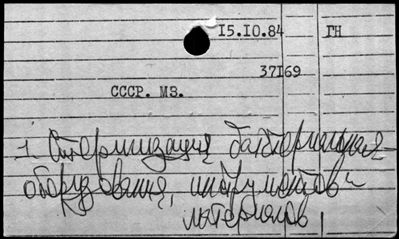 15.10.84 ГН
37169
СССР. МЗ.
1. Стерилизация
оборудования, инструментов и
материалов